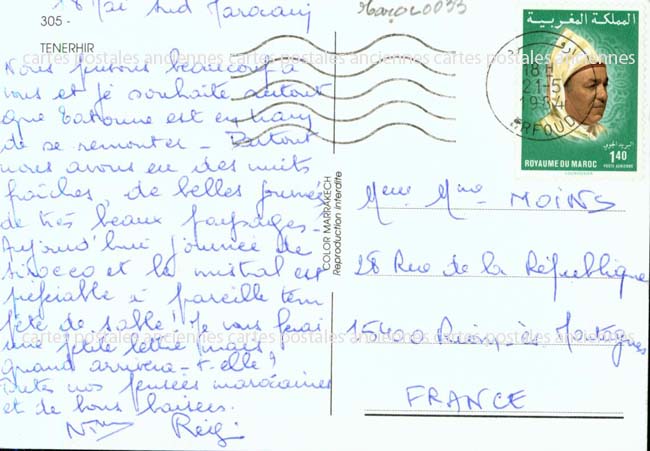 18 Mai Sud Marocain
305 -
TENERHIR
Nous pensons beaucoup à
vous et je souhaite surtout
que Etienne est en train
de se remonter - Partout
nous avons eu des nuits
fraîches, de belles journées
de très beaux paysages -
Aujourd'hui journée de
sirocco et le mistral est
préférable à pareille tem
pête de sable ! Je vous ferai
une petite lettre mais
quand arrivera-t-elle ?
Toutes nos pensées marocaines
et de bons baisers.
COLOR MARRAKECH
Reproduction interdite
Maroc 0033
المملكة المغربية
18H
21-5
1984
ERFOUD
البريد الجوي
ROYAUME DU MAROC
1,40
POSTE AERIENNE
MOINS
28 Rue de la République
15400 Riom ès Montagnes
FRANCE
cartes postales anciennes cartes postales anciennes cartes postales anciennes